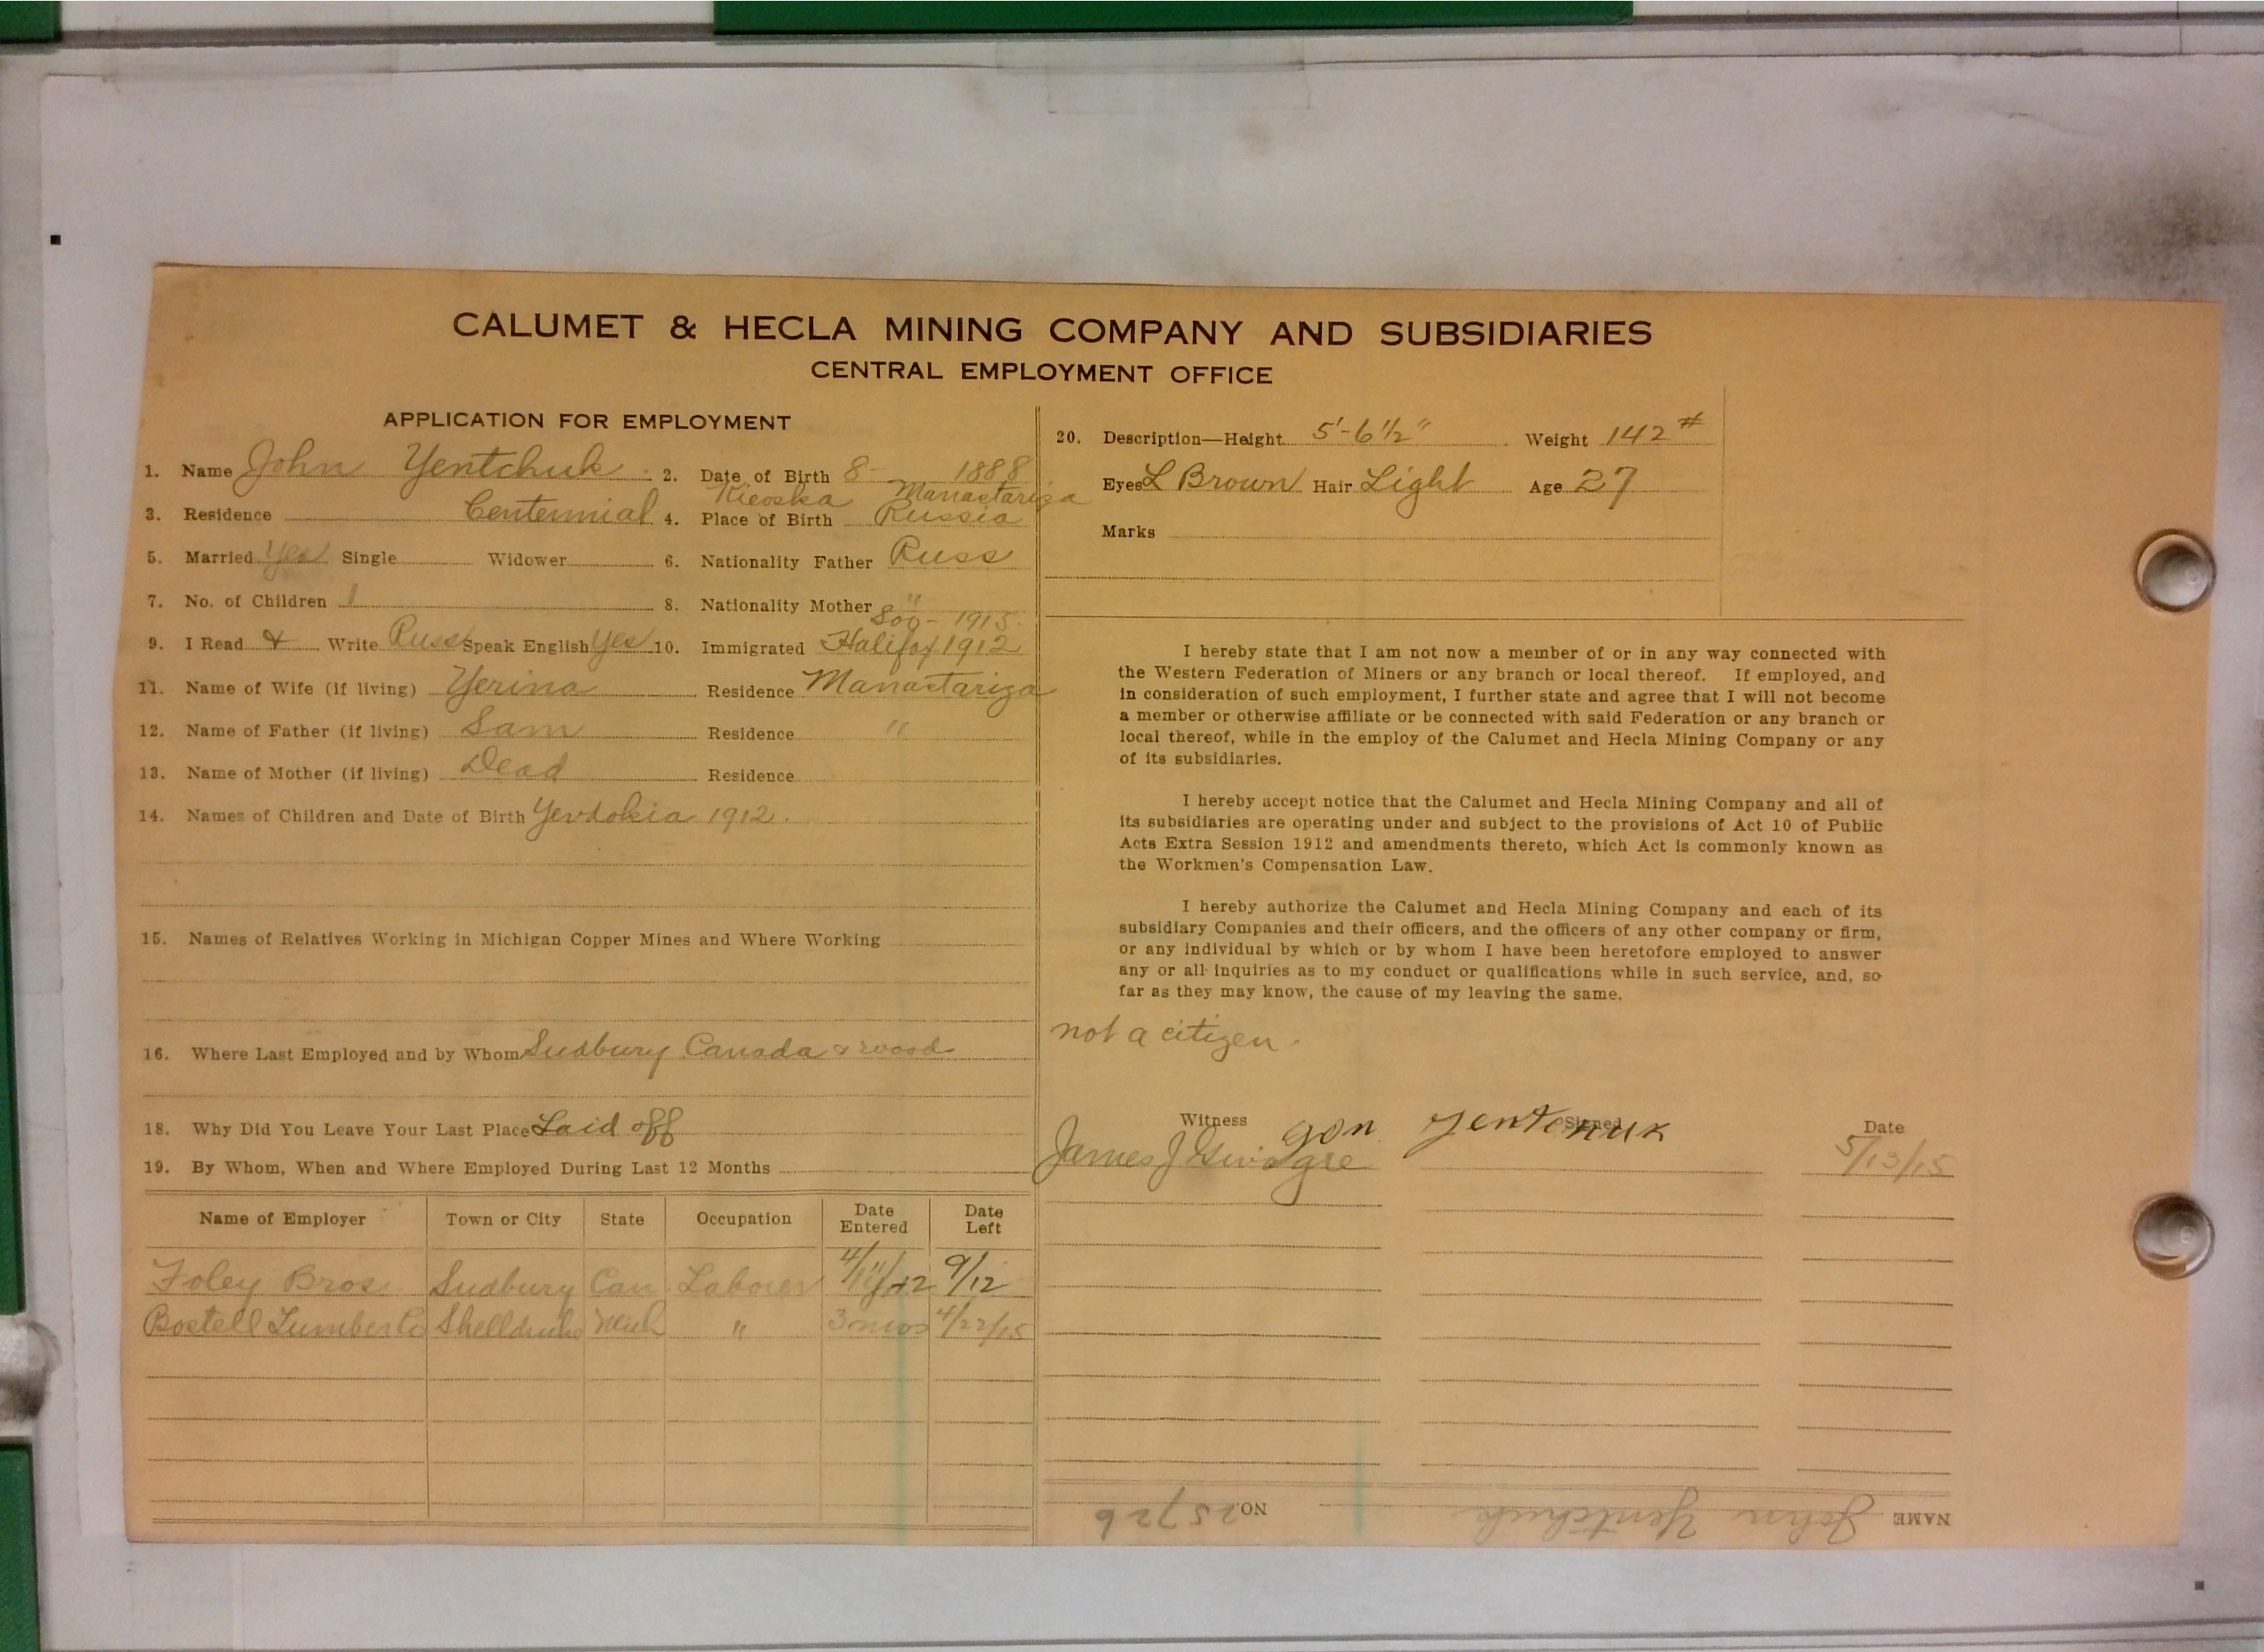 CALUMET & HECLA MINING COMPANY AND SUBSIDIARIES
CENTRAL EMPLOYMENT OFFICE
APPLICATION FOR EMPLOYMENT
1. Name John Yentchuk 2. Date of Birth 8- 1888
Kieoska Manastariza
3. Residence Centennial 4. Place of Birth Russia
5. Married Yes Single Widower 6. Nationality Father Russ
7. No. of Children 1 8. Nationality Mother "
Soo - 1915
9. I Read & Write Russ Speak English Yes 10. Immigrated Halifax 1912
11. Name of Wife (if living) Yerina Residence Manastariza
12. Name of Father (if living) Sam Residence "
13. Name of Mother (if living) Dead Residence
14. Names of Children and Date of Birth Yevdokia 1912.
15. Names of Relatives Working in Michigan Copper Mines and Where Working
16. Where Last Employed and by Whom Sudbury Canada & woods
18. Why Did You Leave Your Last Place Laid off
19. By Whom, When and Where Employed During Last 12 Months
Name of Employer Town or City State Occupation Date Entered Date Left
Foley Bros. Sudbury Can Laborer 9/12
Bostell Lumber Co Mich " 3 mos 4/22/15
20. Description—Height 5'-6½" Weight 142#
Eyes L Brown Hair Light Age 27
Marks
I hereby state that I am not now a member of or in any way connected with
the Western Federation of Miners or any branch or local thereof. If employed, and
in consideration of such employment, I further state and agree that I will not become
a member or otherwise affiliate or be connected with said Federation or any branch or
local thereof, while in the employ of the Calumet and Hecla Mining Company or any
of its subsidiaries.
I hereby accept notice that the Calumet and Hecla Mining Company and all of
its subsidiaries are operating under and subject to the provisions of Act 10 of Public
Acts Extra Session 1912 and amendments thereto, which Act is commonly known as
the Workmen's Compensation Law.
I hereby authorize the Calumet and Hecla Mining Company and each of its
subsidiary Companies and their officers, and the officers of any other company or firm,
or any individual by which or by whom I have been heretofore employed to answer
any or all inquiries as to my conduct or qualifications while in such service, and, so
far as they may know, the cause of my leaving the same.
not a citizen.
Witness Signed Date
gon yentchuk
James J 5/13/15
NAME John Yentchuk NO. 25726